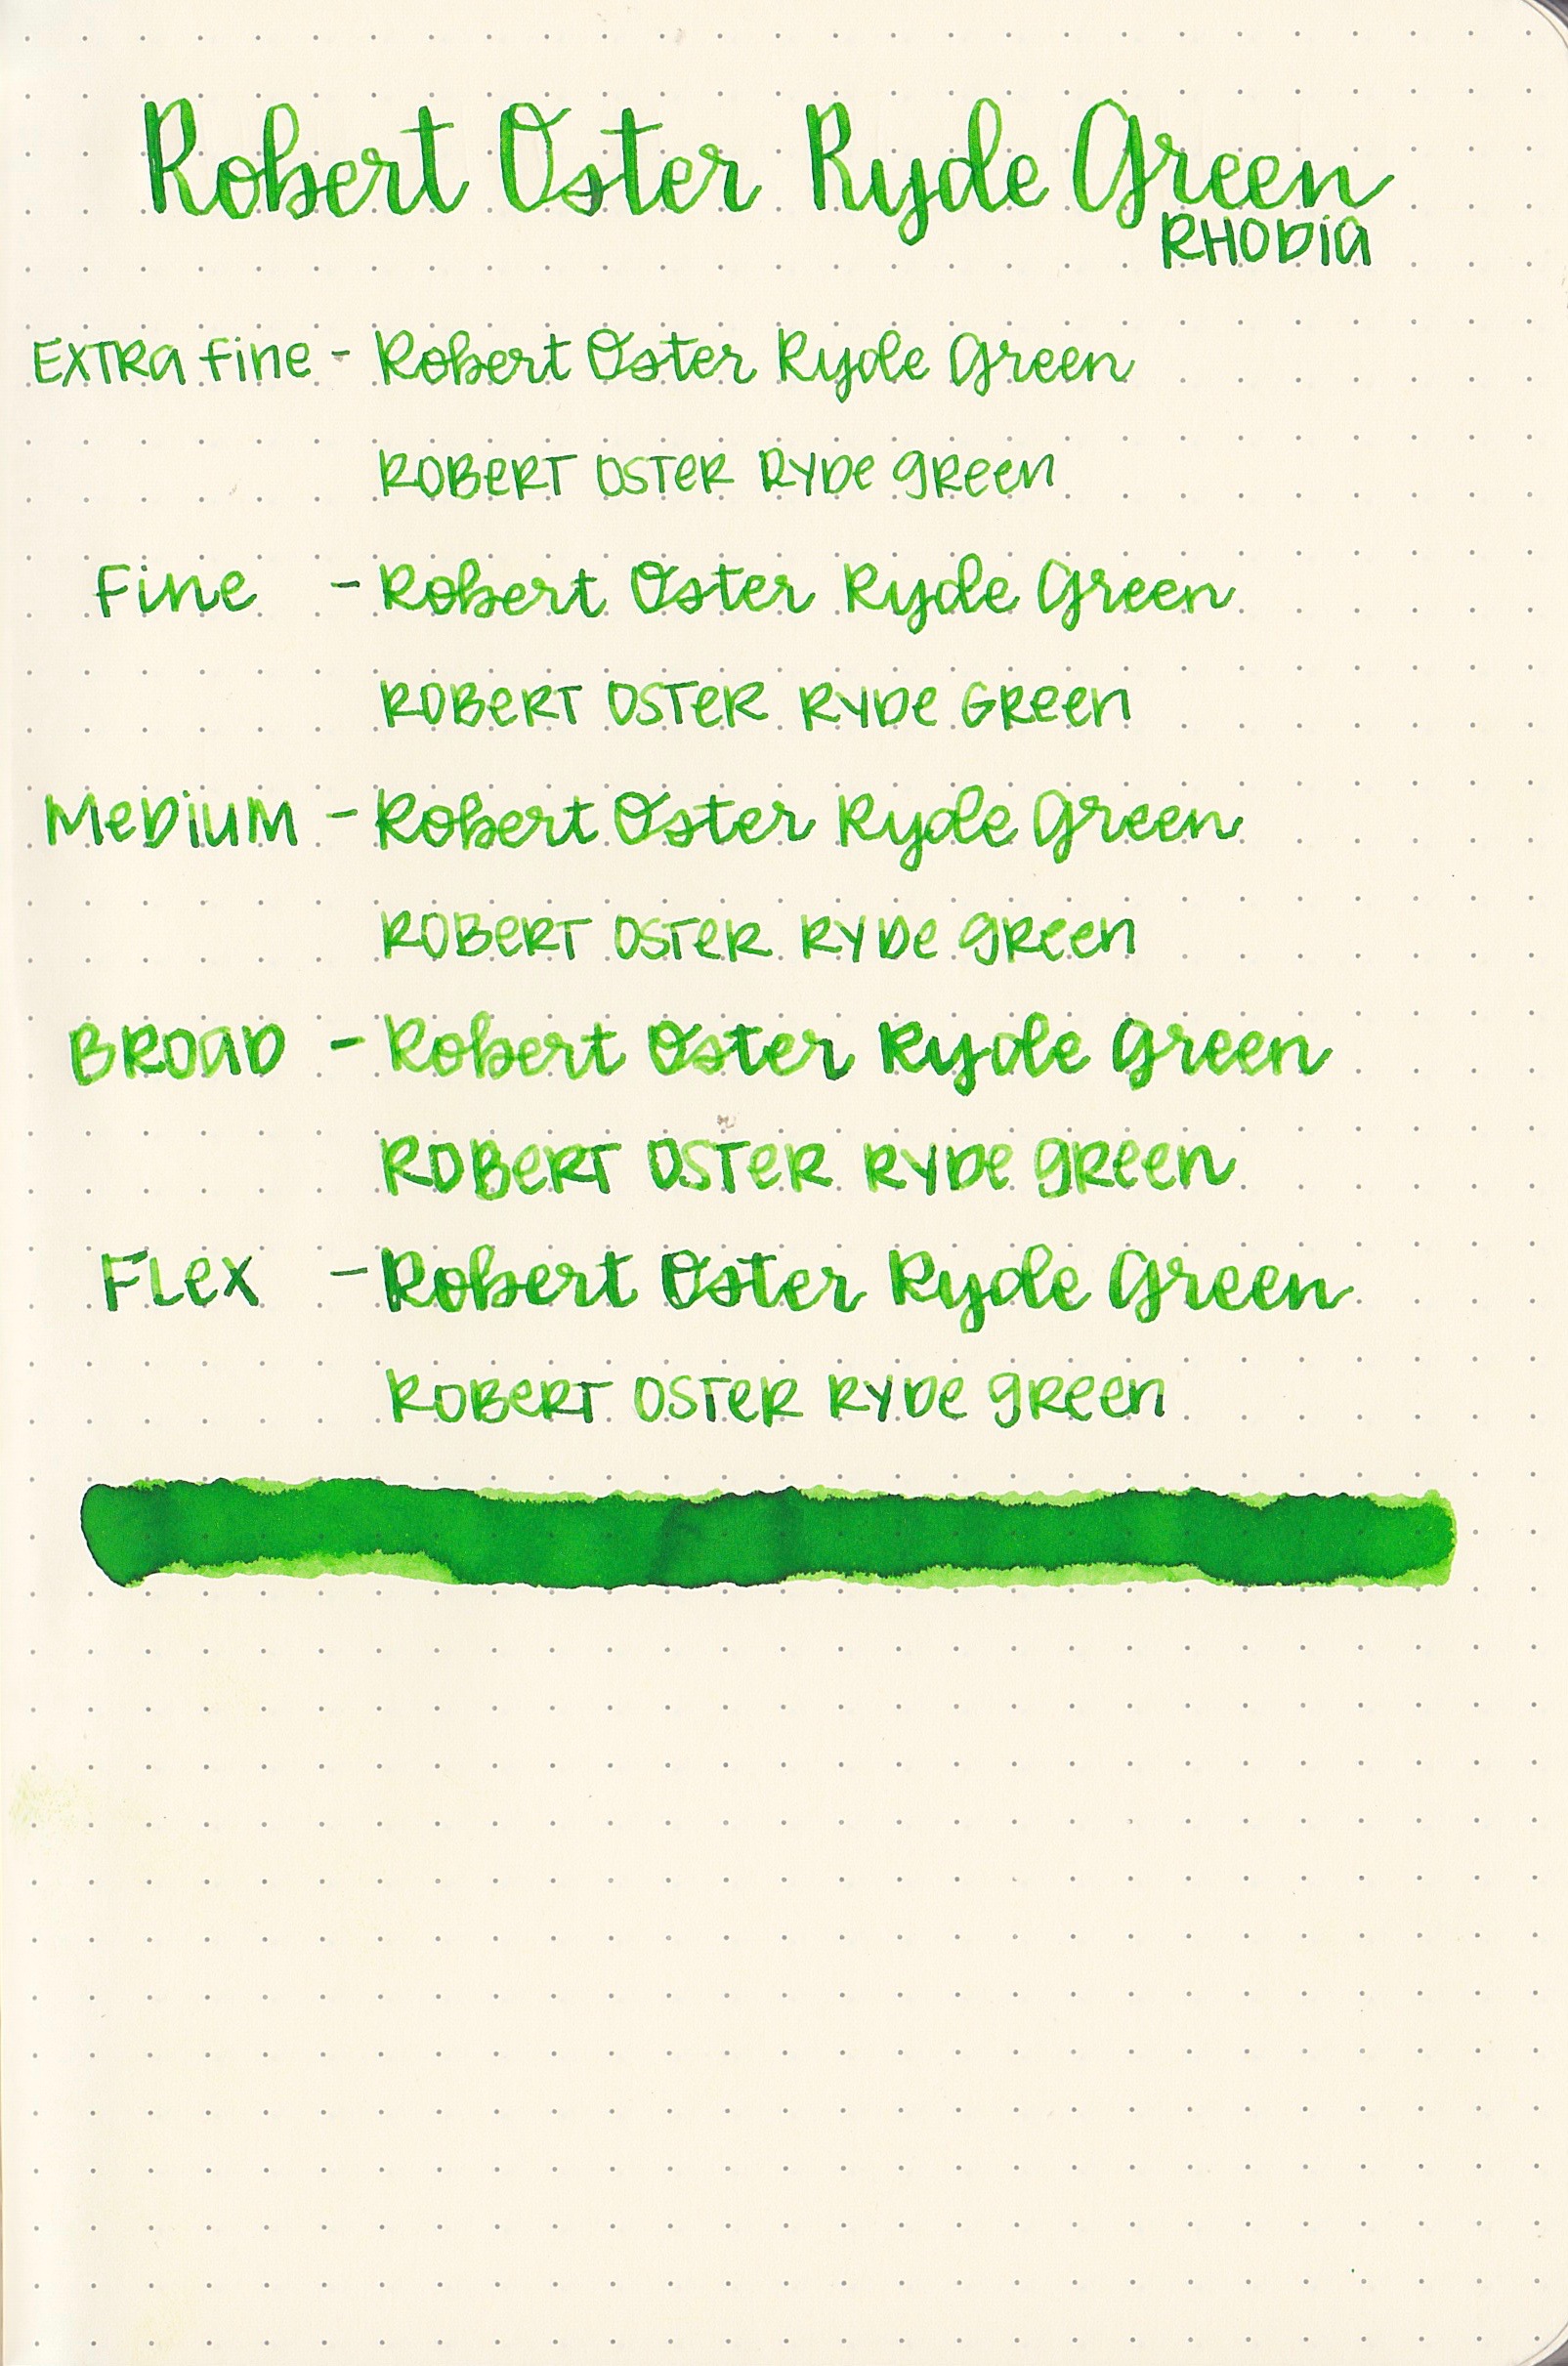 Robert Oster Ryde Green
RHODIA
EXTRA Fine - Robert Oster Ryde Green
ROBERT OSTER RYDE GREEN
Fine - Robert Oster Ryde Green
ROBERT OSTER RYDE GREEN
MEDIUM - Robert Oster Ryde Green
ROBERT OSTER RYDE GREEN
BROAD - Robert Oster Ryde Green
ROBERT OSTER RYDE GREEN
FLEX - Robert Oster Ryde Green
ROBERT OSTER RYDE GREEN